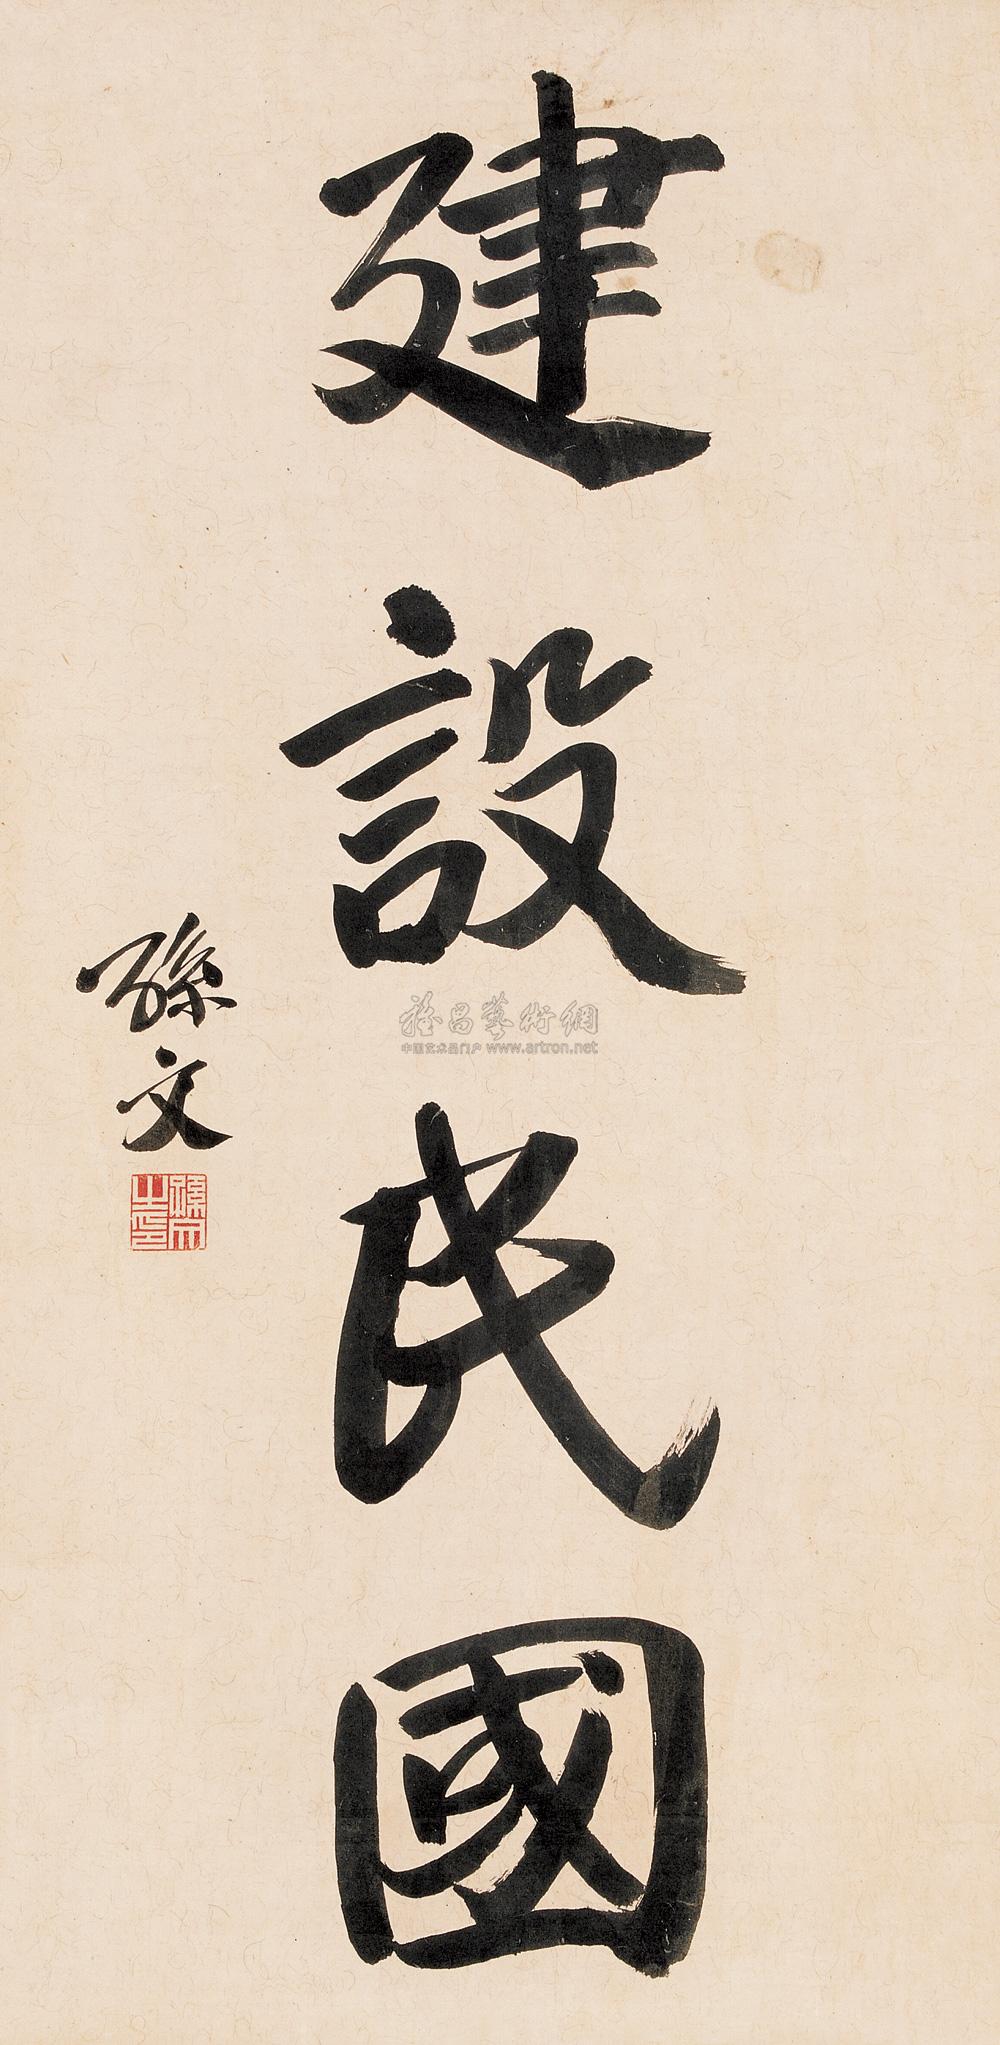 建設民國
孫文
孫文之印
雅昌藝術網
中国艺术品门户 www.artron.net